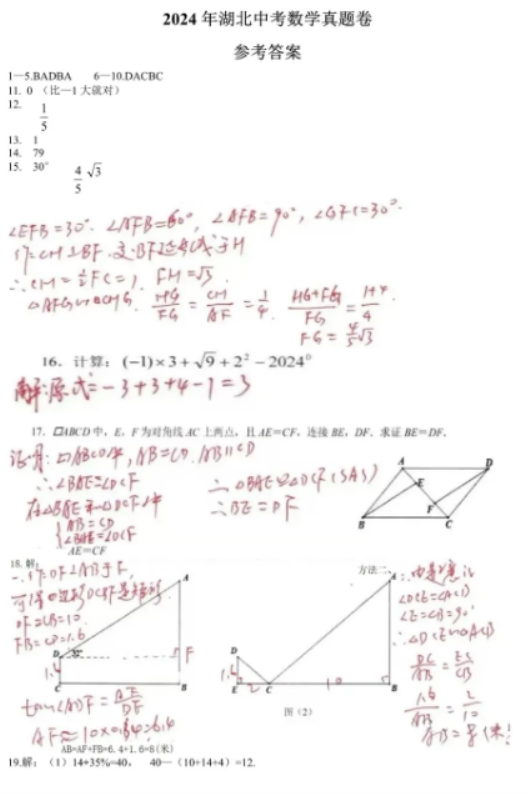 2024年湖北中考数学真题卷
参考答案
1—5.BADBA 6—10.DACBC
11. 0 （比—1大就对）
12. 1/5
13. 1
14. 79
15. 30° 4/5 √3
∠EFB=30°. ∠AFB=60°, ∠AFB=90°, ∠GFC=30°.
作CH⊥BF.交BF延长线于H
∴CH=1/2FC=1, FH=√3.
△AFG∽△CHG. HG/FG=CH/AF=1/4. HG+FG/FG=1+4/4.
FG=4/5√3
16. 计算：(−1)×3+√9+2²−2024⁰
解:原式=−3+3+4−1=3
17. □ABCD中，E，F为对角线AC上两点，且AE=CF，连接BE，DF，求证BE=DF。
证明:□ABCD中, AB=CD. AB∥CD
∴∠BAE=∠DCF
在△BAE和△DCF中
AB=CD
∠BAE=∠DCF
AE=CF
∴△BAE≌△DCF(SAS)
∴BE=DF
A D
E
F
B C
18.解:
一.作DF⊥AB于F,
可得四边形DCBF是矩形.
DF=CB=10.
FB=CD=1.6
A
D 32° F
1.6
C B
tan∠ADF=AF/DF
AF≈10×0.64=6.4
AB=AF+FB=6.4+1.6=8(米)
方法二、
A
D
1.6
E 2 C 10 B
图（2）
∴由题意得
∠DCE=∠ACB
∠E=∠B=90°
∴△DCE∽△ACB
DE/AB=EC/CB
1.6/AB=2/10
AB=8(米)
19.解：（1）14÷35%=40， 40—（10+14+4）=12.